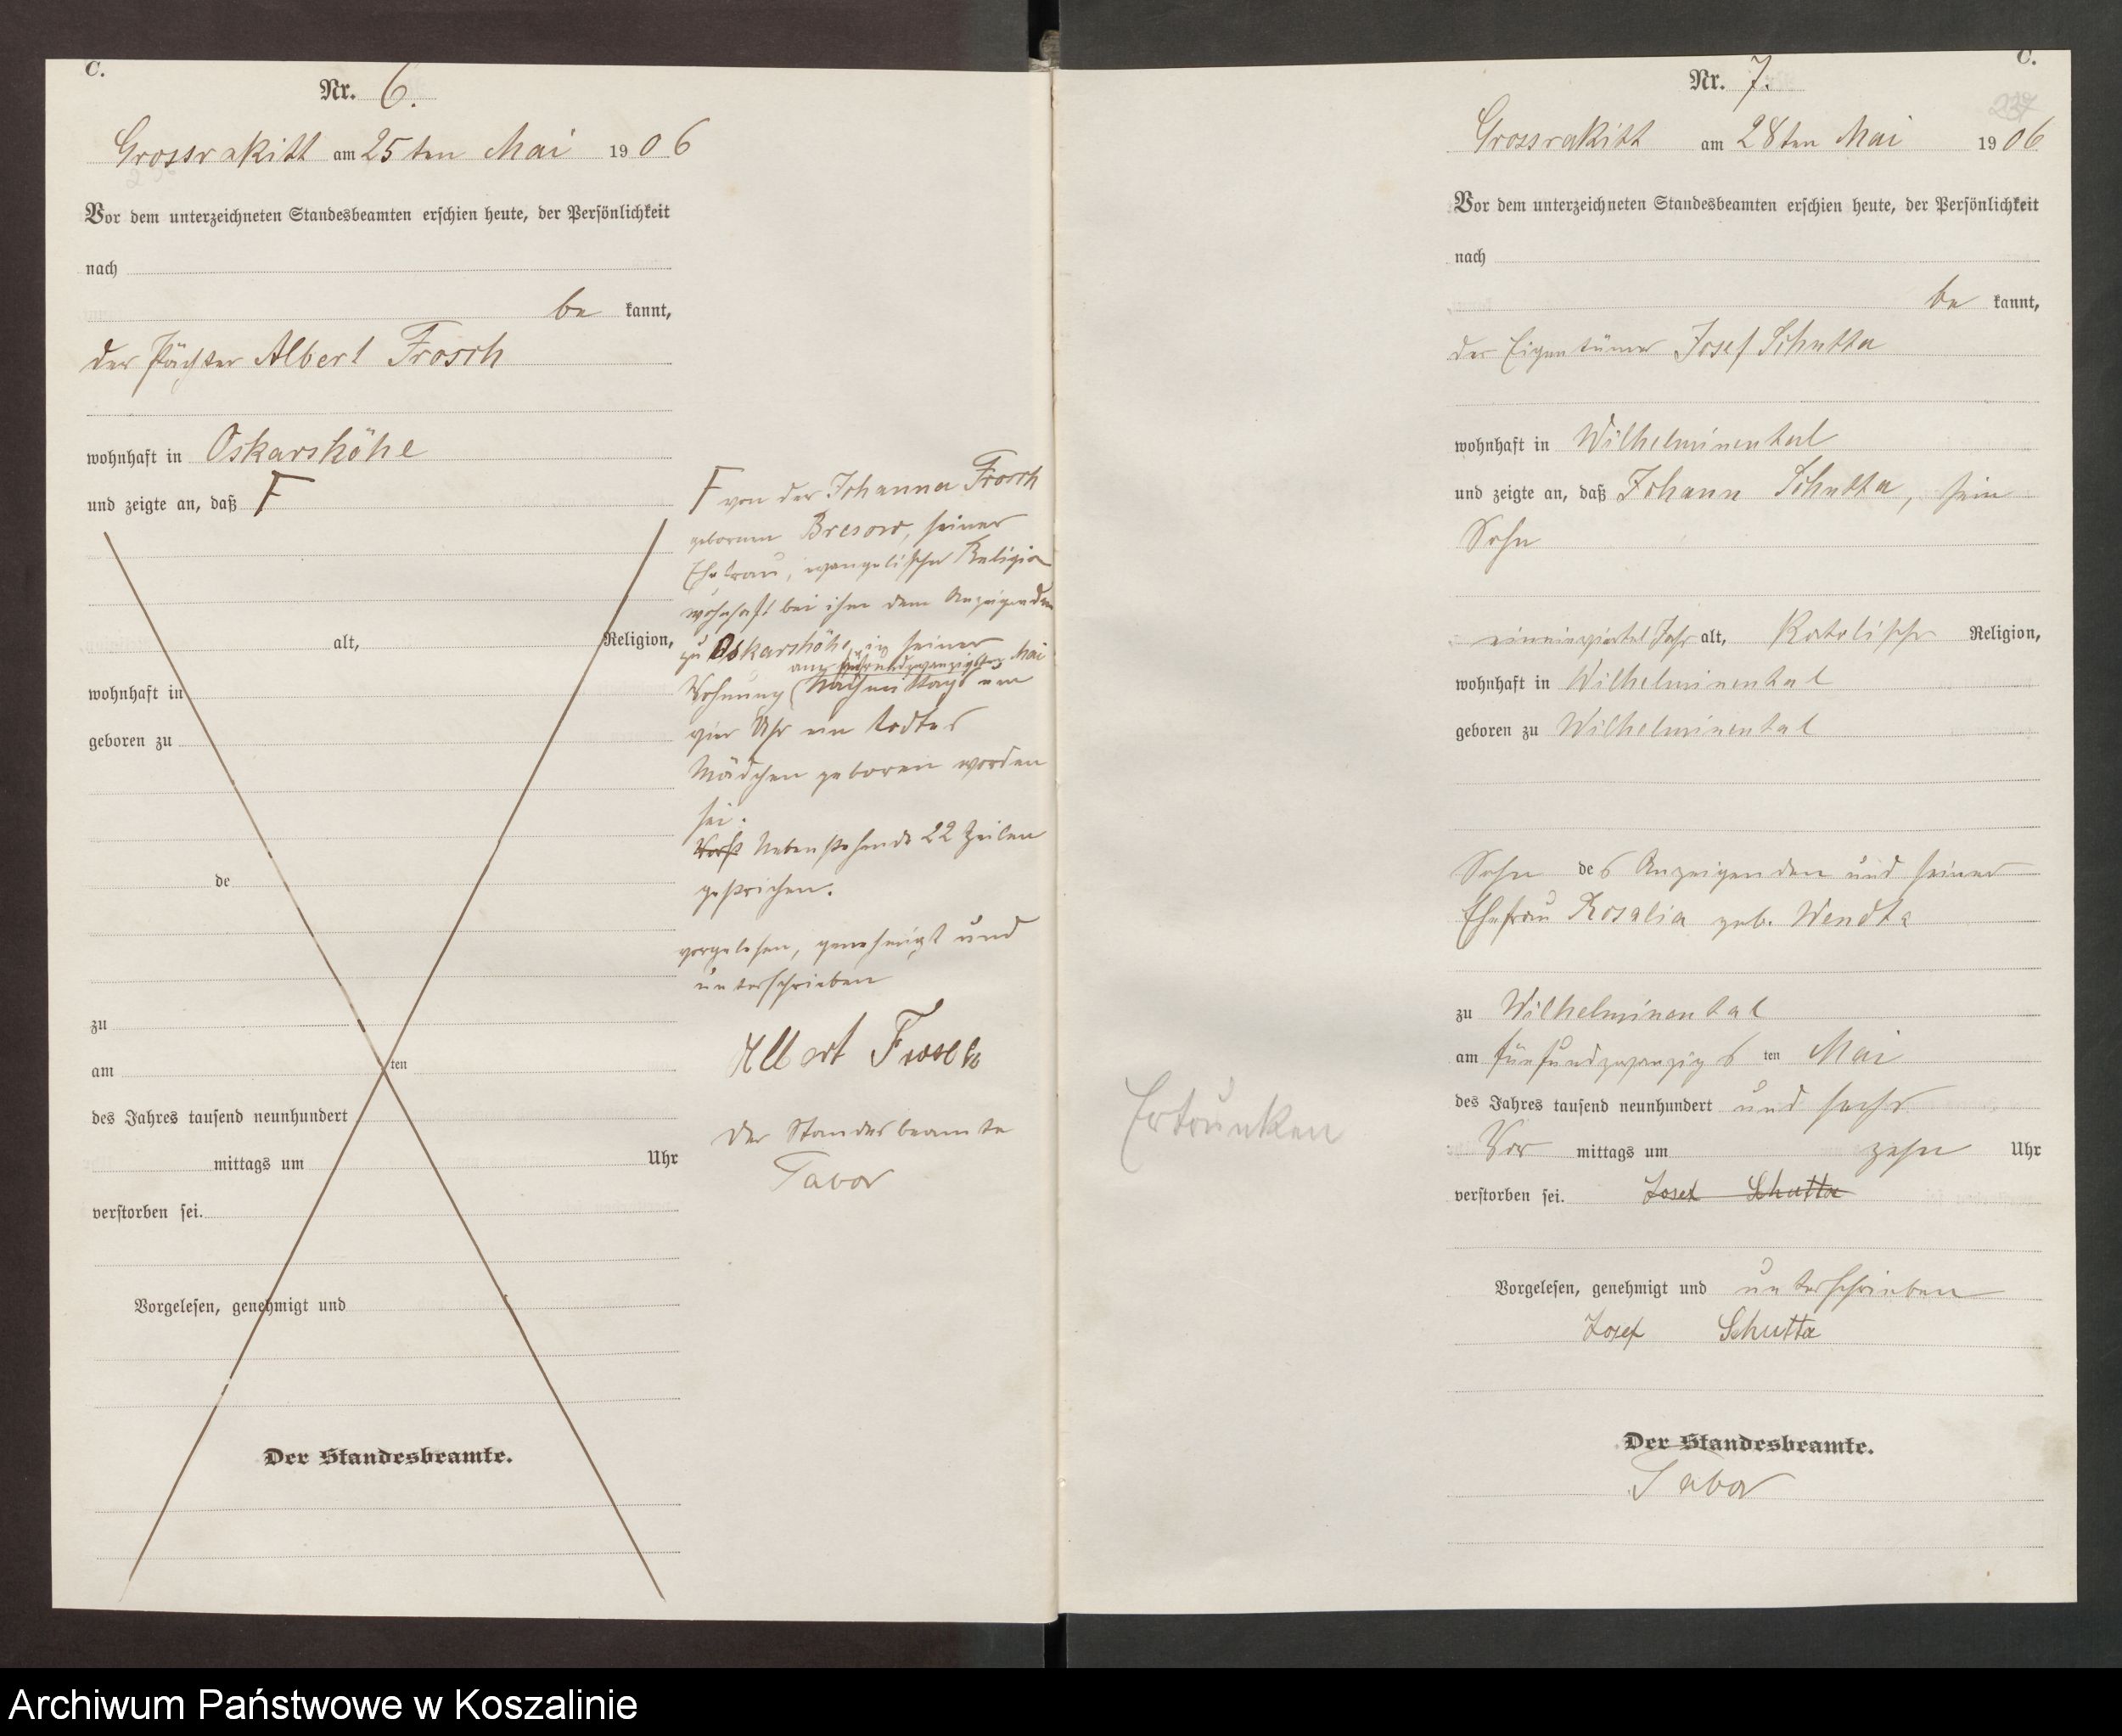 C.
Nr. 6.
Grossrakitt am 25ten Mai 1906
Vor dem unterzeichneten Standesbeamten erschien heute, der Persönlichkeit
nach
be kannt,
der Pächter Albert Frosch
wohnhaft in Oskarshöhe
und zeigte an, daß F
alt, Religion,
wohnhaft in
geboren zu
de
zu
am ten
des Jahres tausend neunhundert
mittags um Uhr
verstorben sei.
Vorgelesen, genehmigt und
Der Standesbeamte.
F von der Johanna Frosch
gebornen Bresow, seiner
Ehefrau, evangelischer Religion
wohnhaft bei ihm dem Anzeigenden
zu Oskarshöhe, in seiner
am zwanzigsten Mai
Wohnung Nachmittags um
vier Uhr ein todtes
Mädchen geboren worden
sei.
Vorst Nebenstehende 22 Zeilen
gestrichen.
vorgelesen, genehmigt und
unterschrieben
Albert Frosch
Der Standesbeamte
Tabor
C.
Nr. 7.
237
Grossrakitt am 28ten Mai 1906
Vor dem unterzeichneten Standesbeamten erschien heute, der Persönlichkeit
nach
be kannt,
der Eigentümer Josef Schutta
wohnhaft in Wilhelminental
und zeigte an, daß Johann Schutta, sein
Sohn
eineinviertel Jahr alt, Katolischer Religion,
wohnhaft in Wilhelminental
geboren zu Wilhelminental
Sohn des Anzeigenden und seiner
Ehefrau Rosalia geb. Wendta
zu Wilhelminental
am fünfundzwanzigs ten Mai
des Jahres tausend neunhundert und sechs
Vor mittags um zehn Uhr
verstorben sei. Josef Schutta
Ertrunken
Vorgelesen, genehmigt und unterschrieben
Josef Schutta
Der Standesbeamte.
Tabor
Archiwum Państwowe w Koszalinie